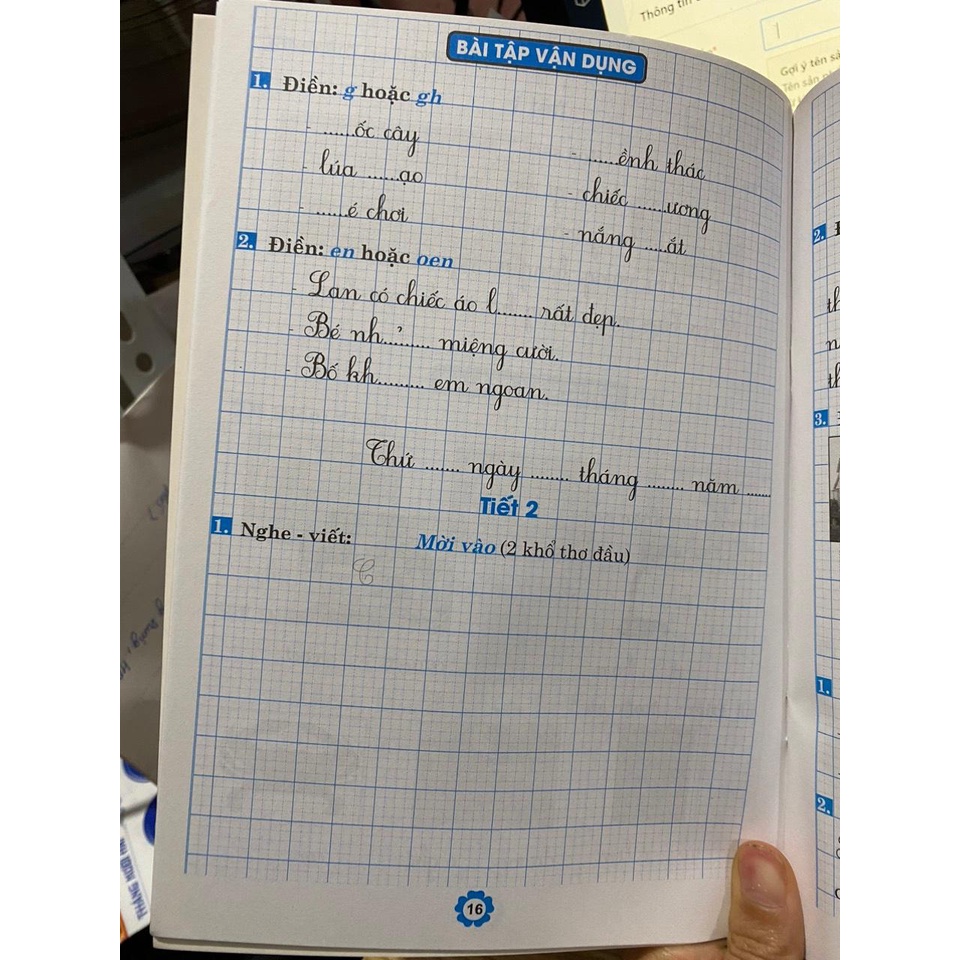 Thông tin
Gợi ý tên sả
Tên sản
BÀI TẬP VẬN DỤNG
1. Điền: g hoặc gh
- ......ốc cây
- ......ềnh thác
- lúa ......ạo
- chiếc ......ương
- ......é chơi
- nắng .....ắt
2. Điền: en hoặc oen
- Lan có chiếc áo l....... rất đẹp.
- Bé nh...̉...... miệng cười.
- Bố kh......... em ngoan.
Thứ ....... ngày ........ tháng ........ năm ......
Tiết 2
1. Nghe - viết: Mời vào (2 khổ thơ đầu)
C
16
2.
th
n
th
3.
1.
2.